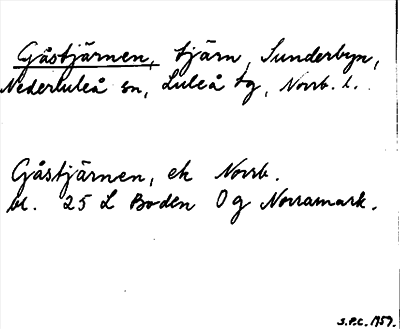 Gåstjärnen, tjärn, Sunderbyn,
Nederluleå sn, Luleå tg, Norrb. l.
Gåstjärnen, ek Norrb.
bl. 25 L Boden Og Norramark.
S.P.C. 1957.